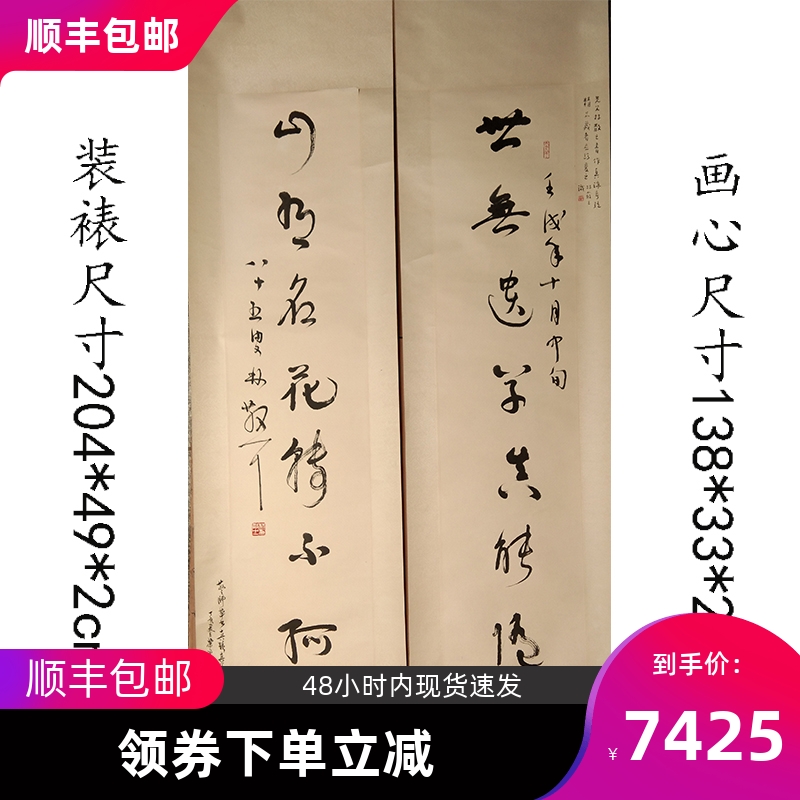 顺丰包邮
装裱尺寸204*49*2c
画心尺寸138*33*2
世無遗草真能隐
壬戌年十月中旬
山有名花转不孤
八十五叟林散耳
顺丰包邮
48小时内现货速发
领券下单立减
到手价：
￥7425